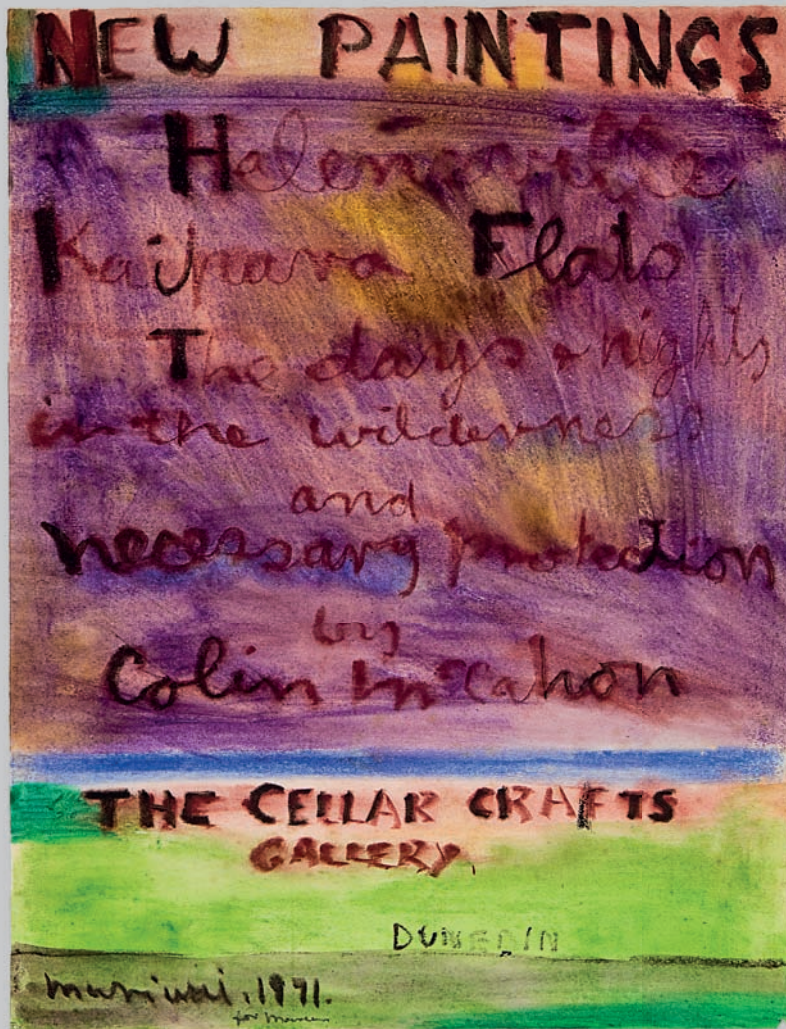 NEW PAINTINGS
Helensville
Kaipara Flats
The days & nights
in the wilderness
and
necessary protection
by
Colin McCahon
THE CELLAR CRAFTS
GALLERY.
DUNEDIN
muriwai. 1971.
for